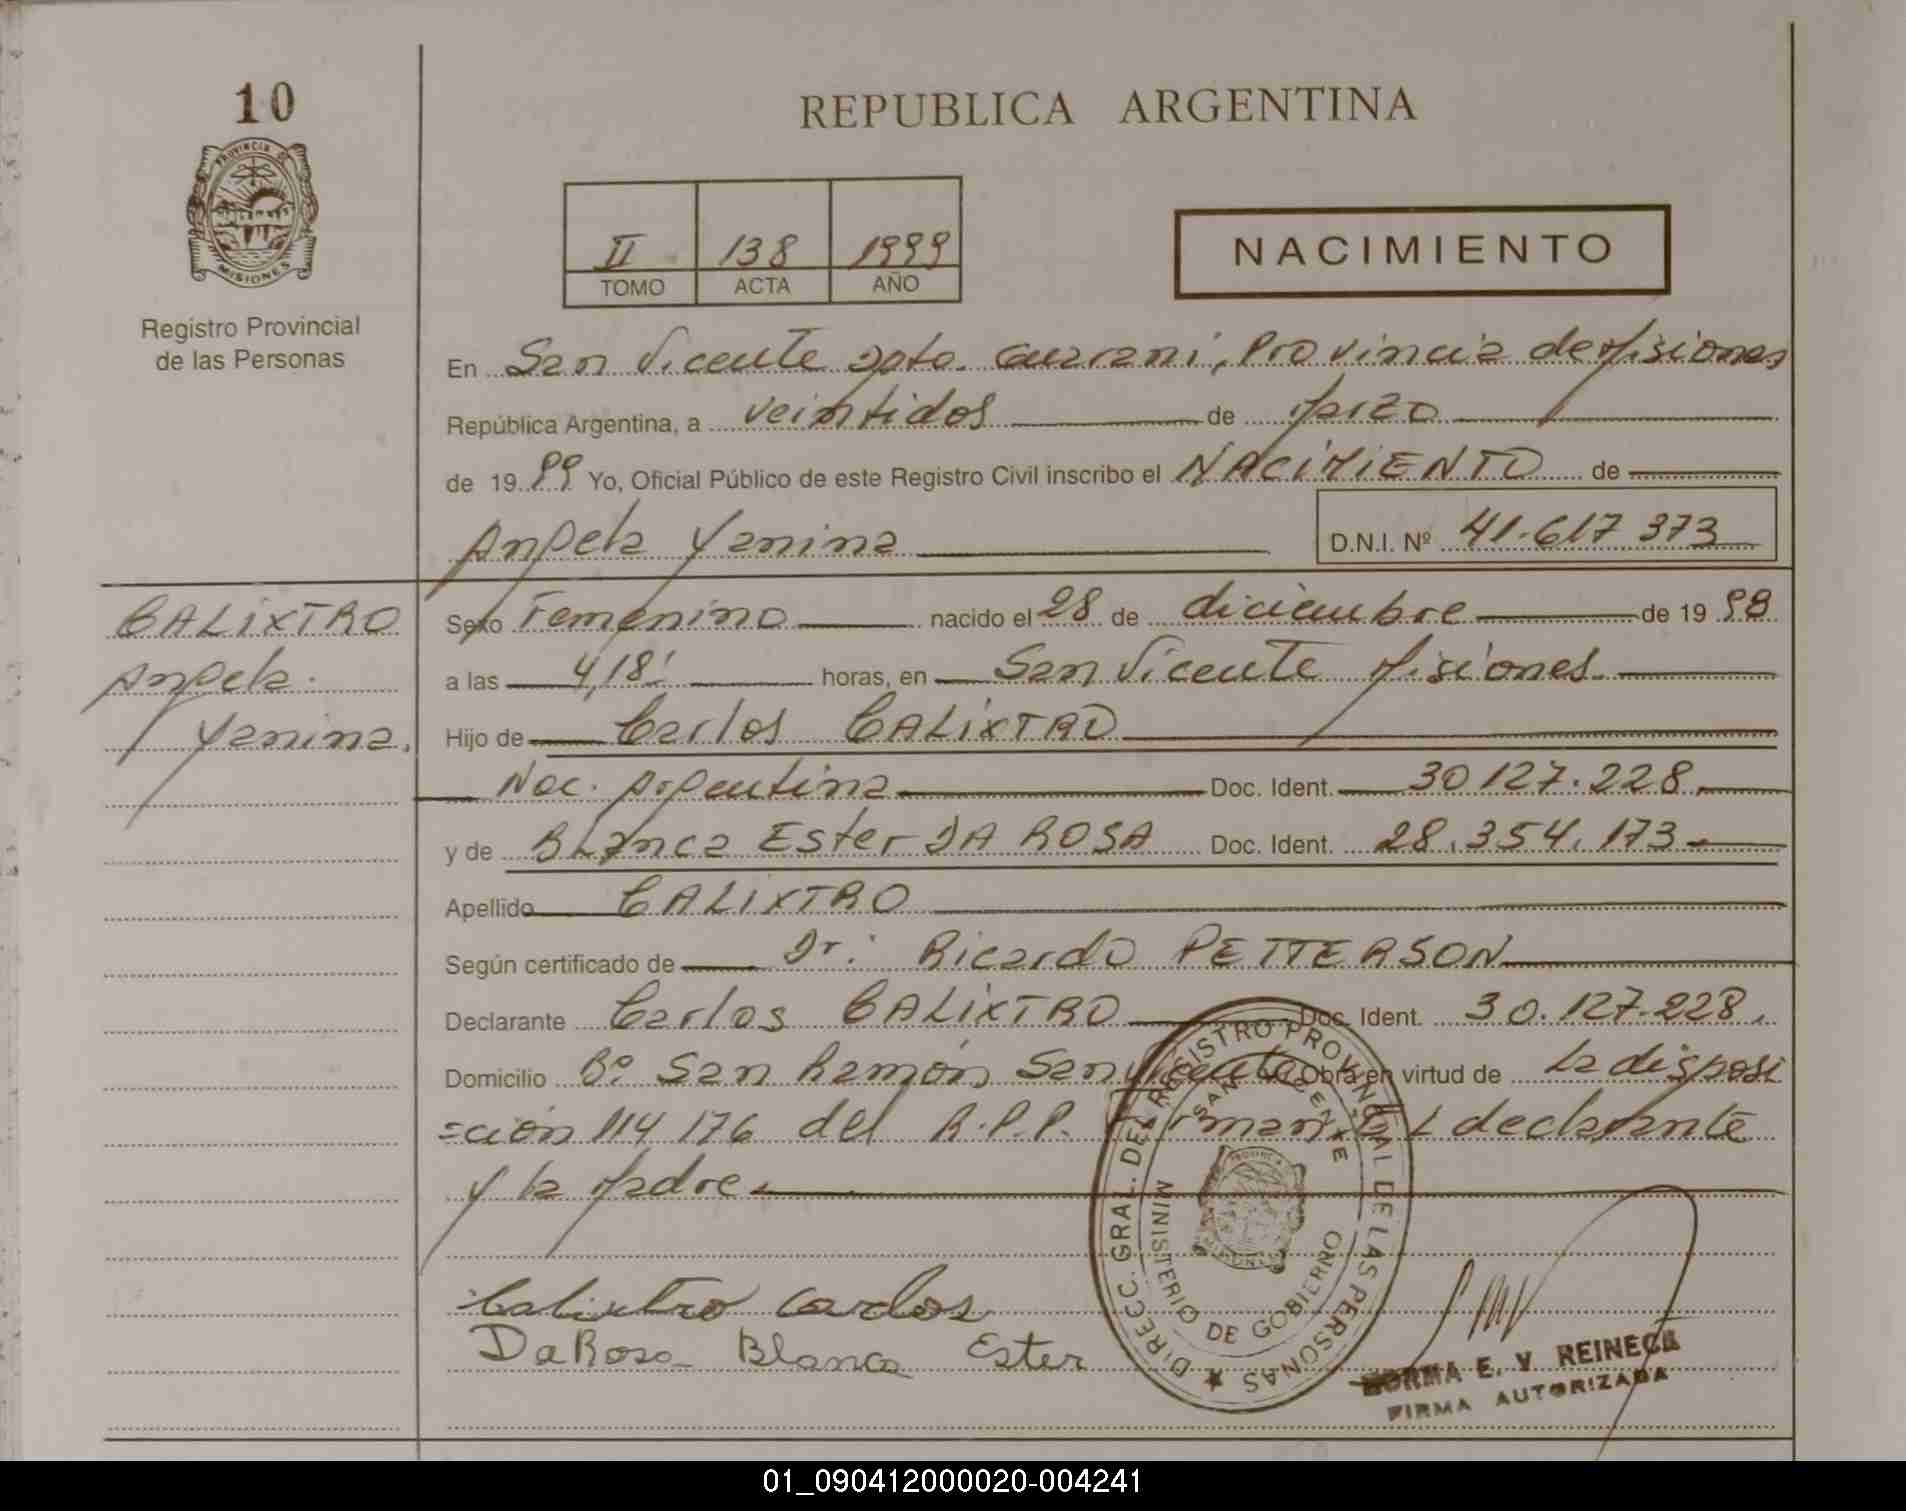 10
REPUBLICA ARGENTINA
PROVINCIA DE
MISIONES
II 138 1999
TOMO ACTA AÑO
NACIMIENTO
Registro Provincial
de las Personas
En San Vicente Dpto. Guarani, Provincia de Misiones
República Argentina, a veintidos de Marzo
de 1999 Yo, Oficial Público de este Registro Civil inscribo el NACIMIENTO de
Angela Yanina D.N.I. Nº 41.617 373
CALIXTRO
Angela
Yanina.
Sexo Femenino nacido el 28 de diciembre de 1998
a las 4,18' horas, en San Vicente Misiones.
Hijo de Carlos CALIXTRO
Nac. Argentina Doc. Ident. 30 127.228.
y de Blanca Ester DA ROSA Doc. Ident. 28.354.173.
Apellido CALIXTRO
Según certificado de Dr: Ricardo PETTERSON
Declarante Carlos CALIXTRO Doc. Ident. 30.127.228.
Domicilio Bº San Ramón San Vicente Obra en virtud de la disposi
=ción 114 176 del R.P.P. Firman: El declarante
y la Madre.
Calixtro Carlos
DaRosa Blanca Ester
DIRECC. GRAL. DEL REGISTRO PROVINCIAL DE LAS PERSONAS
SAN VICENTE
MINISTERIO DE GOBIERNO
MISIONES
NORMA E. V. REINECK
FIRMA AUTORIZADA
01_090412000020-004241